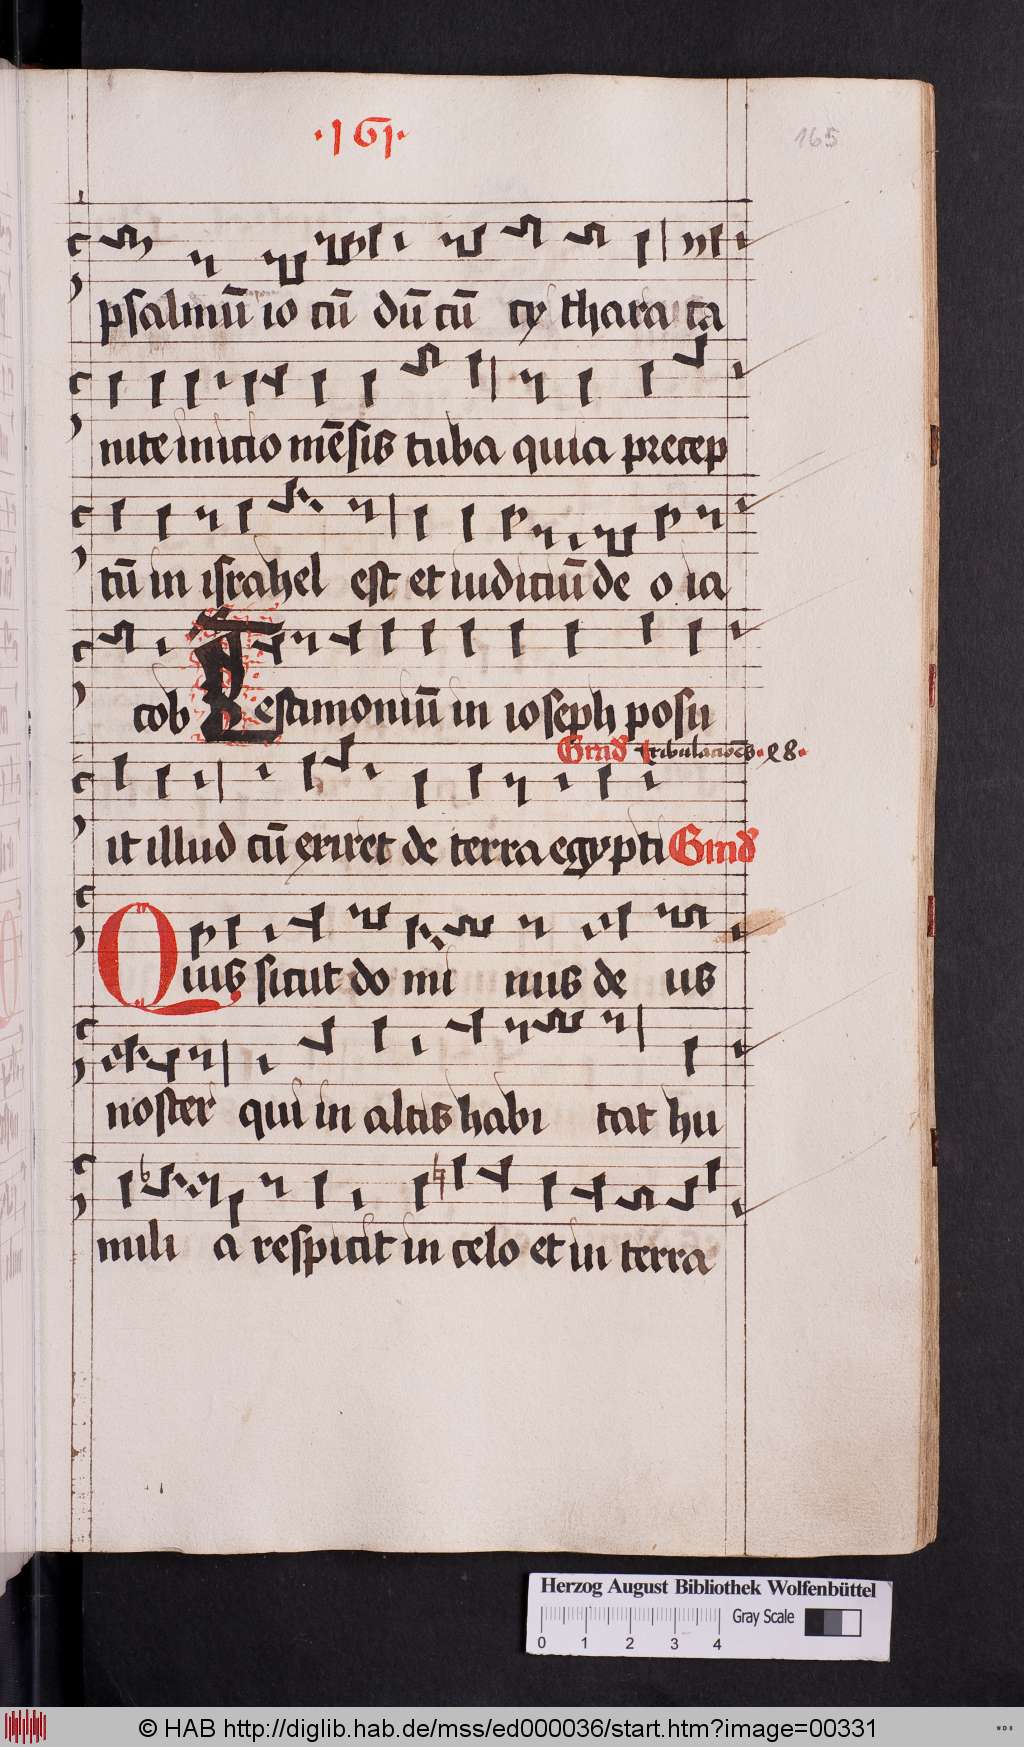 ·161·
165
psalmū io cū dū cū cy thara ca
nite inicio mēsis tuba quia precep
tū in israhel est et iudiciū de o ia
cob Testimoniū in ioseph posu
Grad tribulacōēs · 28 ·
it illud cū exiret de terra egypti Grad
Quis sicut do mi nus de us
noster qui in altis habi tat hu
mili a respicit in celo et in terra
Herzog August Bibliothek Wolfenbüttel
Gray Scale
0 1 2 3 4
© HAB http://diglib.hab.de/mss/ed000036/start.htm?image=00331